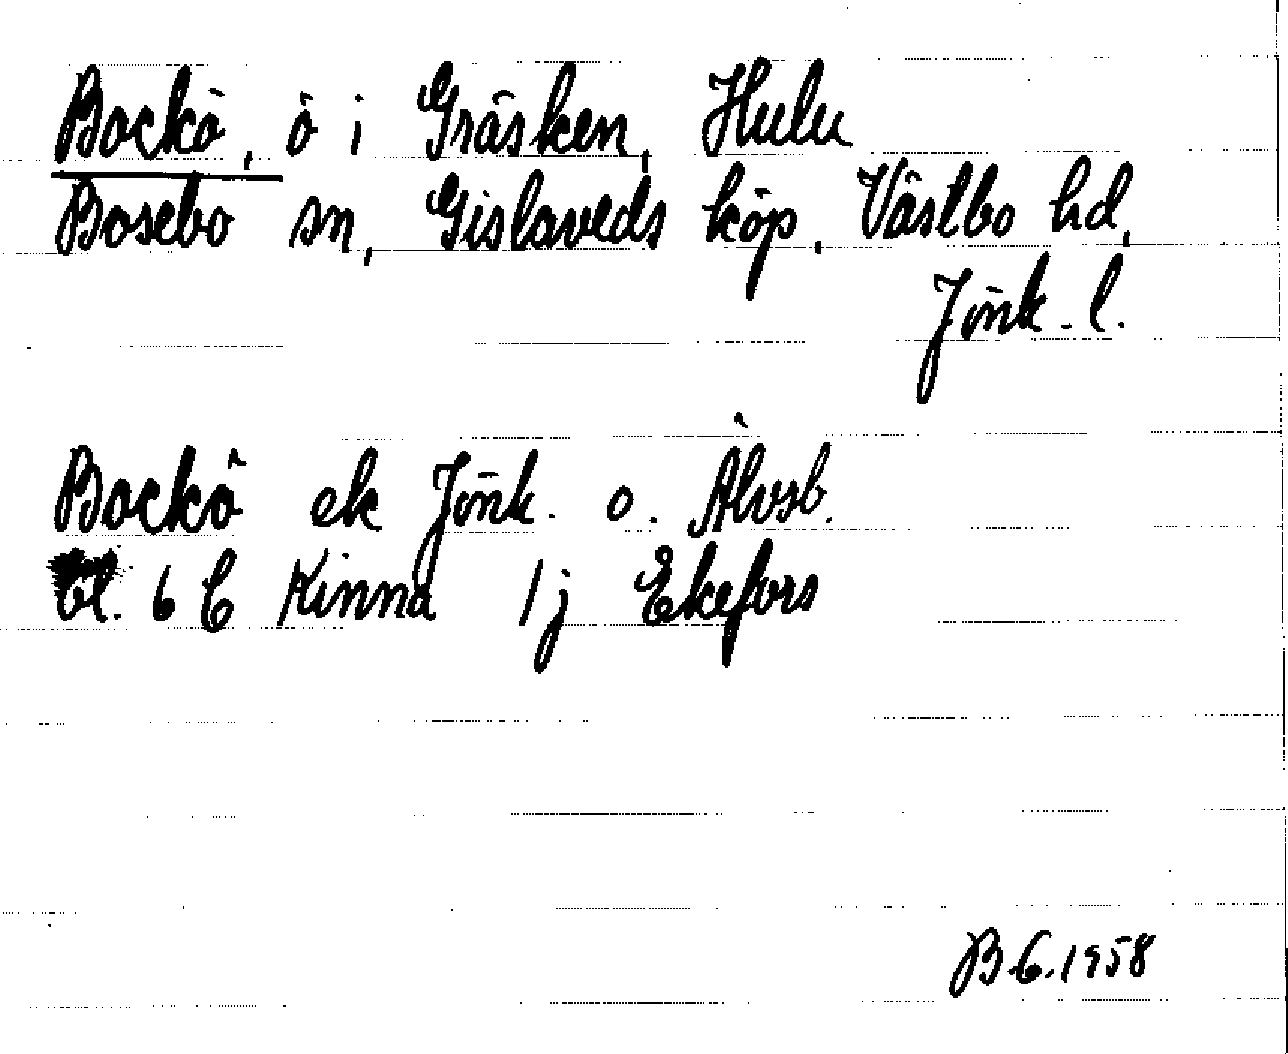 Bockö, ö i Gräsken, Hulu
Bosebo sn, Gislaveds köp, Västbo hd,
Jönk. l.
Bockö ek Jönk. o. Älvsb.
bl. 6 C Kinna 1j Ekefors
B.C. 1958